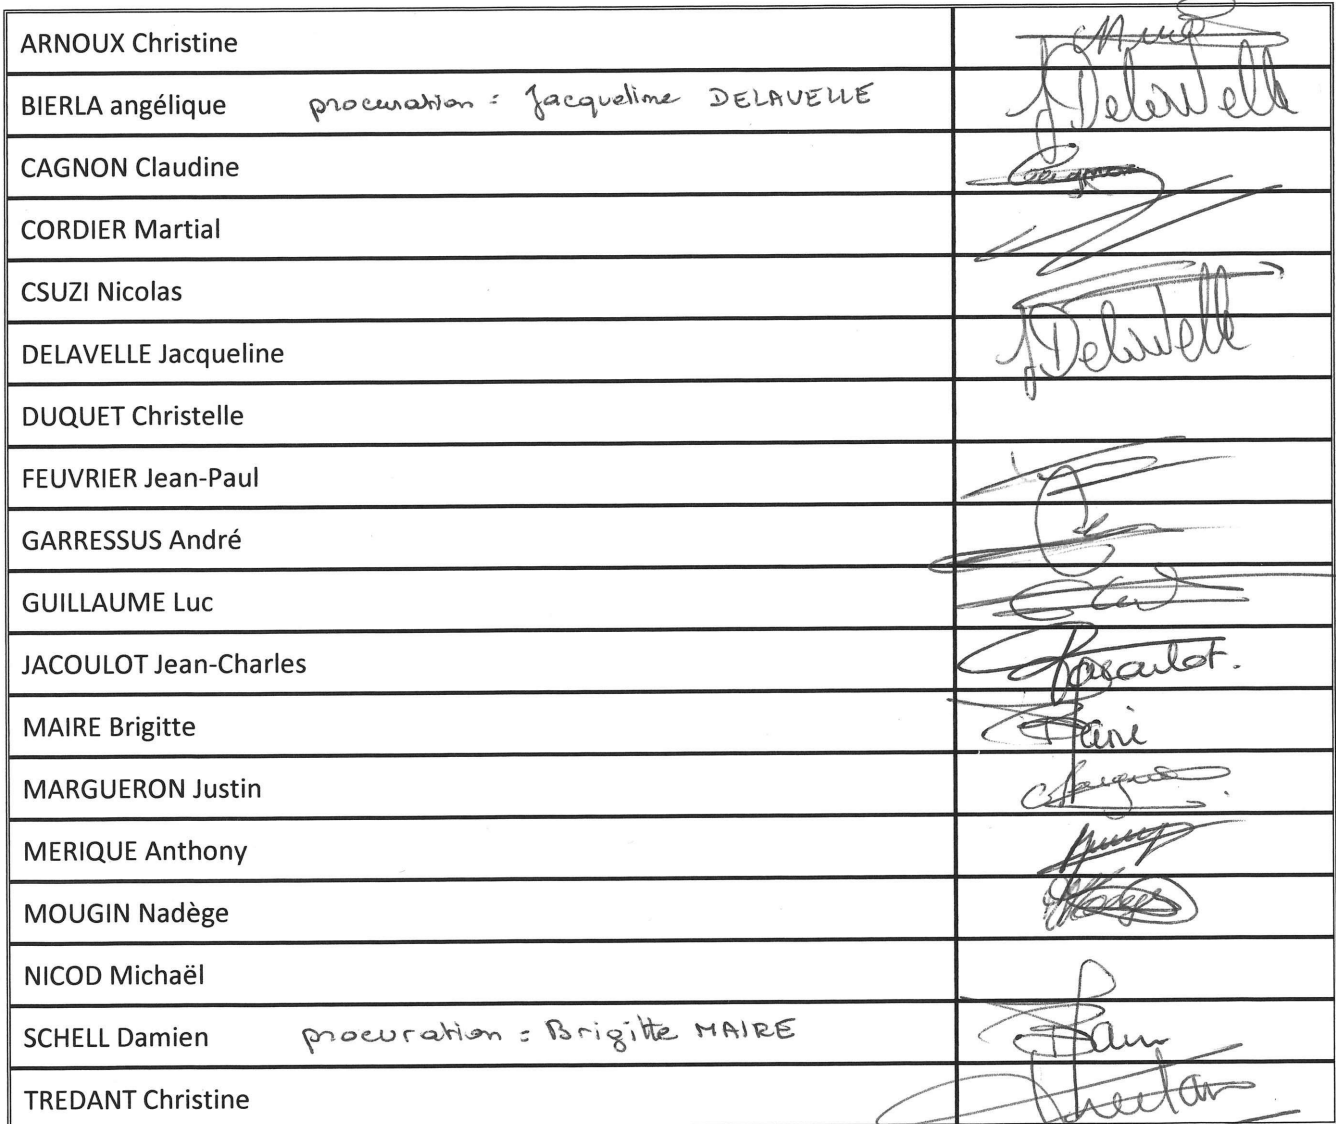 ARNOUX Christine
BIERLA angélique procuration : Jacqueline DELAVELLE JDelavelle
CAGNON Claudine
CORDIER Martial
CSUZI Nicolas
DELAVELLE Jacqueline JDelavelle
DUQUET Christelle
FEUVRIER Jean-Paul
GARRESSUS André
GUILLAUME Luc
JACOULOT Jean-Charles Jacoulot.
MAIRE Brigitte
MARGUERON Justin
MERIQUE Anthony
MOUGIN Nadège
NICOD Michaël
SCHELL Damien procuration : Brigitte MAIRE
TREDANT Christine